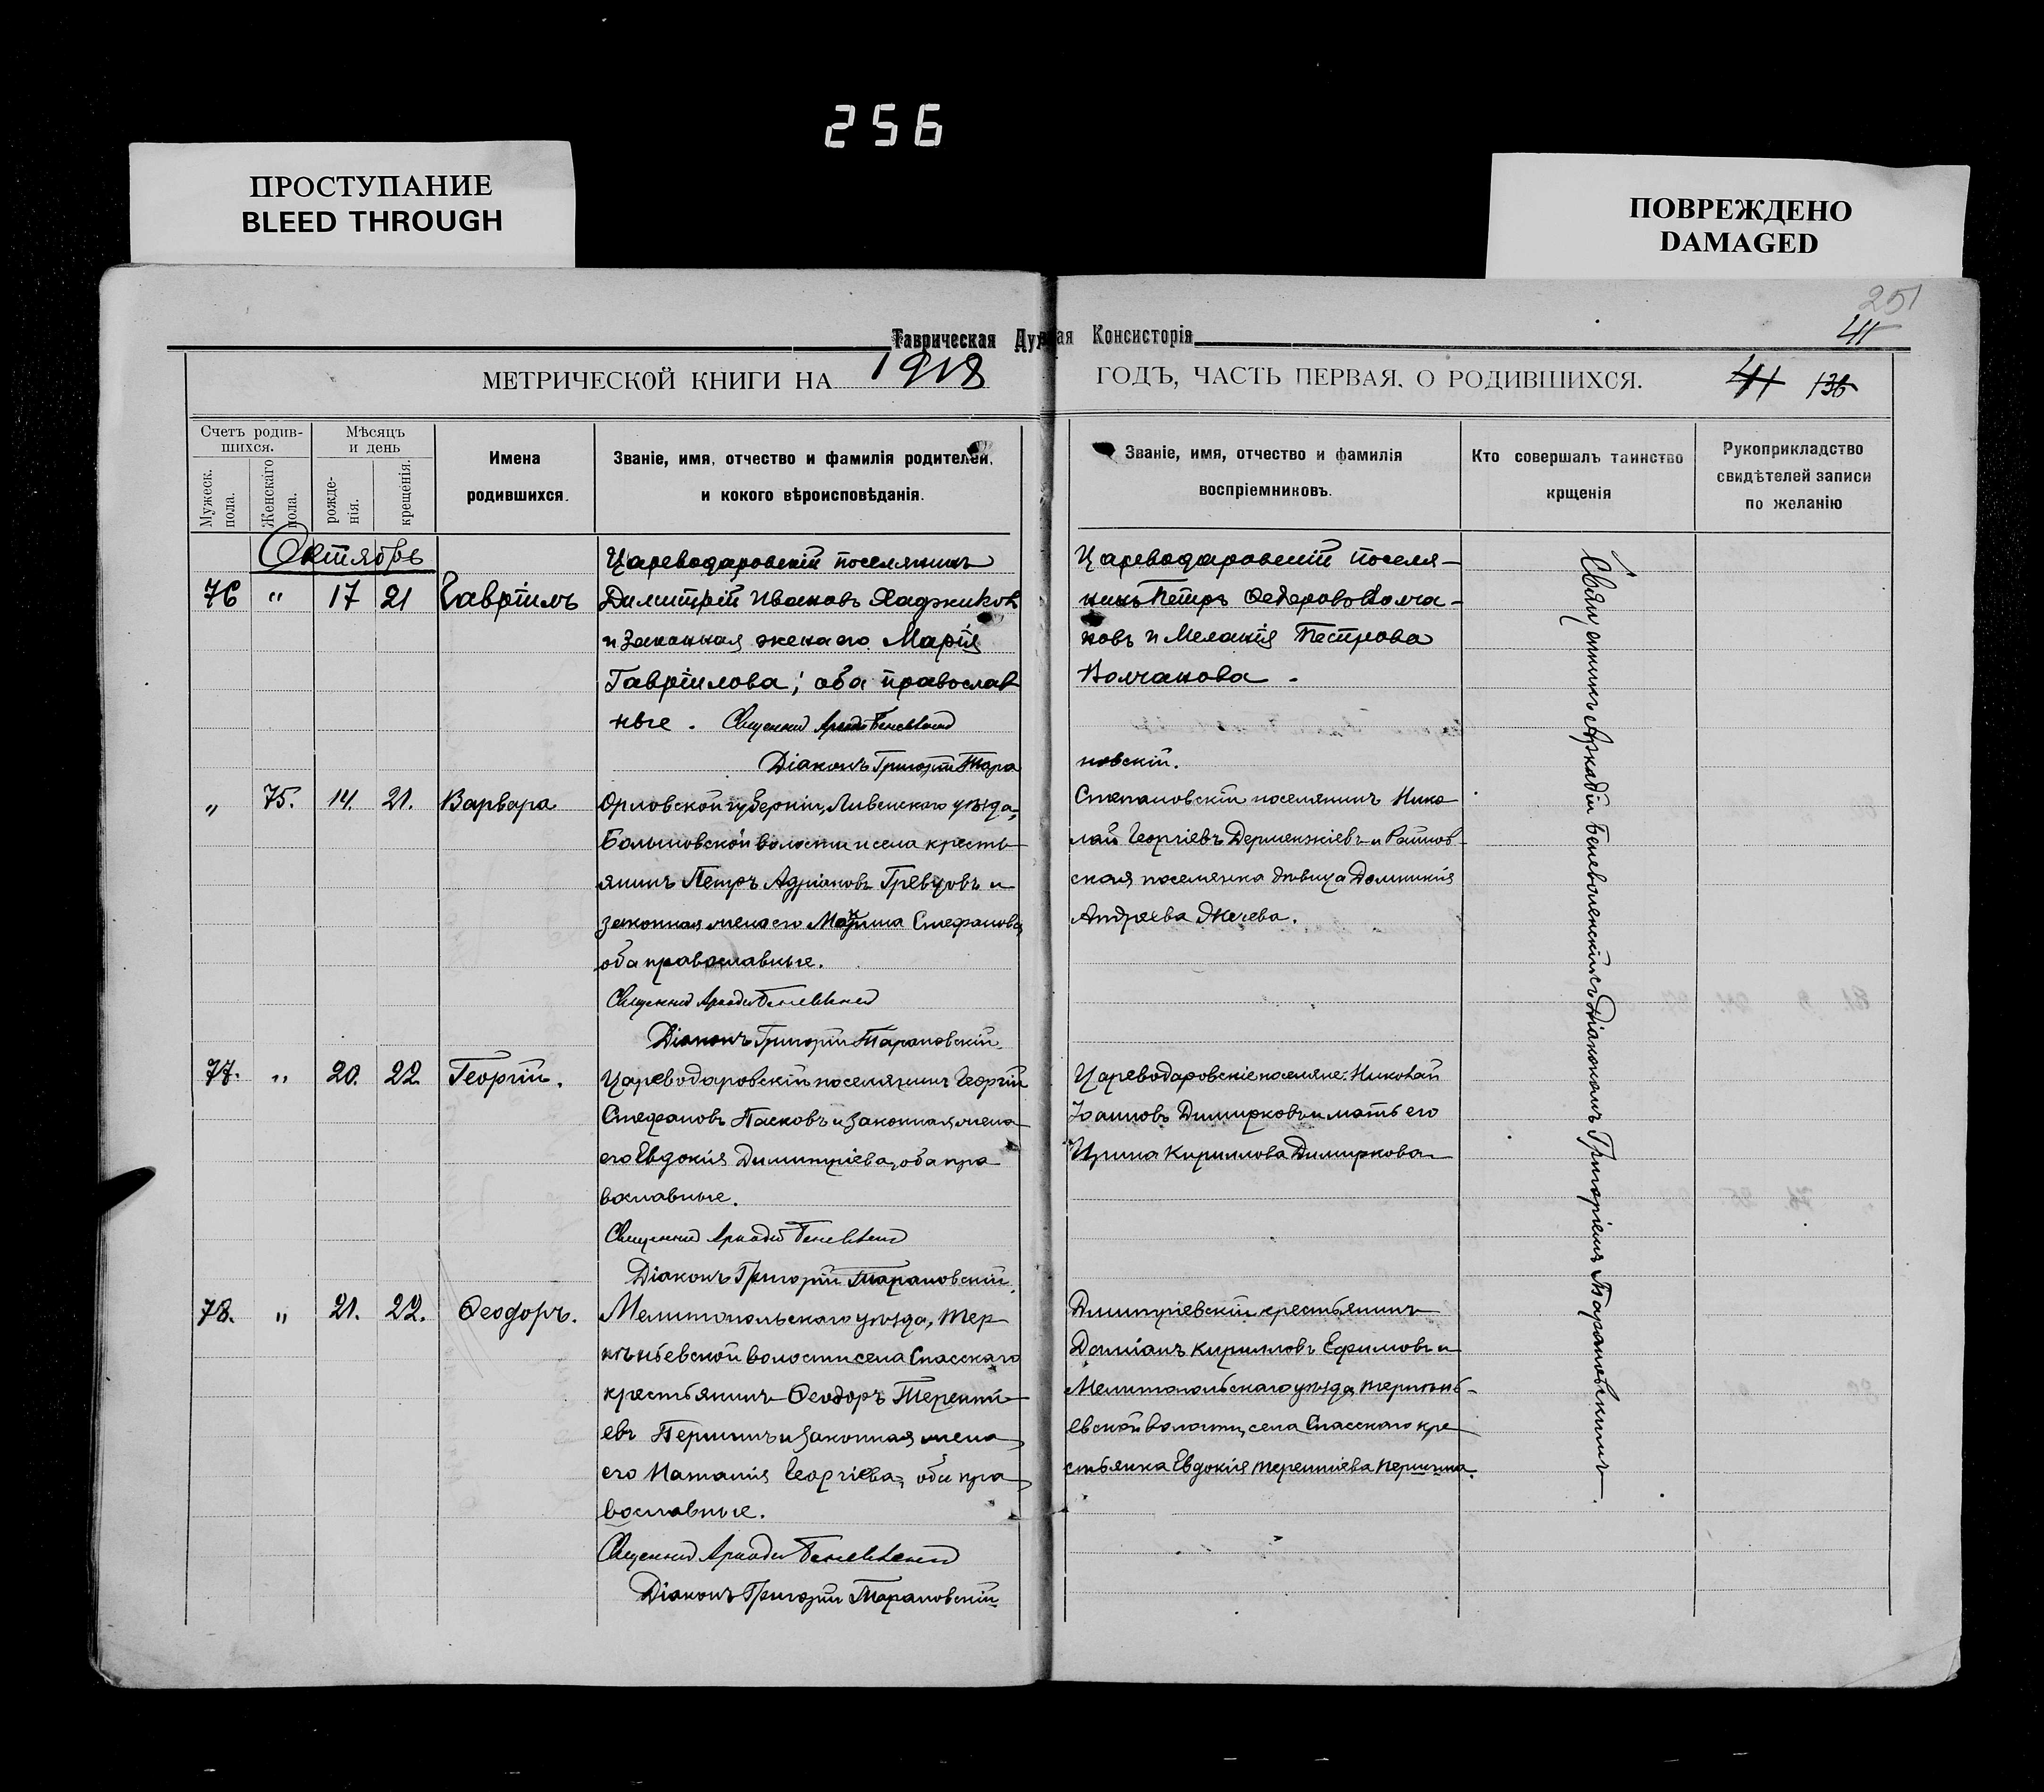 256
ПРОСТУПАНИЕ
BLEED THROUGH
ПОВРЕЖДЕНО
DAMAGED
251
41
Таврическая Духовная Консисторія
МЕТРИЧЕСКОЙ КНИГИ НА 1918 ГОДЪ, ЧАСТЬ ПЕРВАЯ, О РОДИВШИХСЯ.
41 136
Счетъ родив-
шихся.
Мужеск. пола.
Женскаго пола.
Мѣсяцъ
и день
рожде-
нія.
крещенія.
Имена
родившихся.
Званіе, имя, отчество и фамилія родителей,
и кокого вѣроисповѣданія.
Званіе, имя, отчество и фамилія
воспріемниковъ.
Кто совершалъ таинство
крщенія
Рукоприкладство
свидѣтелей записи
по желанію
Октябрь
76 " 17 21 Гавріилъ
Цареводаровскій поселянинъ
Димитрій Ивановъ Хаджиков
и законная жена его Марія
Гавріилова; оба православ
ные. Священник Аркадій
Діаконъ Григорій Тара
Цареводаровскій поселя-
нинъ Петръ Федоровъ Колча-
ковъ и Меланія Петрова
Колчакова.
новскій.
" 75. 14. 21. Варвара
Орловской губерніи, Ливенскаго уѣзда,
волости и села кресть
янинъ Петръ Адріановъ Гревцовъ и
законная жена его Стефанова
оба православные.
Священник Аркадій
Діаконъ Григорій Тарановскій.
Степановскій поселянинъ Нико
лай Георгіевъ Дерменжіевъ и Райнов-
ская поселянка дѣвица Домникія
Андреева Жечева.
77. " 20. 22. Георгій.
Цареводаровскій поселянинъ Георгій
Стефановъ Пасковъ и законная жена
его Евдокія Димитріева, оба пра
вославные.
Священник Аркадій
Діаконъ Григорій Тарановскій.
Цареводаровскіе поселяне: Николай
Іоанновъ Димирковъ и мать его
Ирина Кириллова Димиркова
78. " 21. 22. Ѳеодоръ.
Мелитопольскаго уѣзда, Тер
пѣньевской волости села Спасскаго
крестьянинъ Ѳеодоръ Терентi
евъ Першинъ и законная жена
его Наталія Георгіева, оба пра
вославные.
Священник Аркадій
Діаконъ Григорій Тарановскій
Димитріевскій крестьянинъ
Даміанъ Кирилловъ Ефимовъ и
Мелитопольскаго уѣзда Терпѣнь-
евской волости, села Спасскаго кре
стьянка Евдокія Терентіева Першина.
Священникъ Аркадій Беневоленскій съ Діакономъ Григоріемъ Тарановскимъ